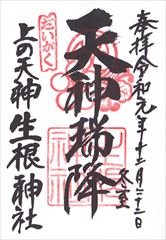 奉拝令和元年十二月二十二日
冬至
天神瑞降
だいがく
上の天神生根神社